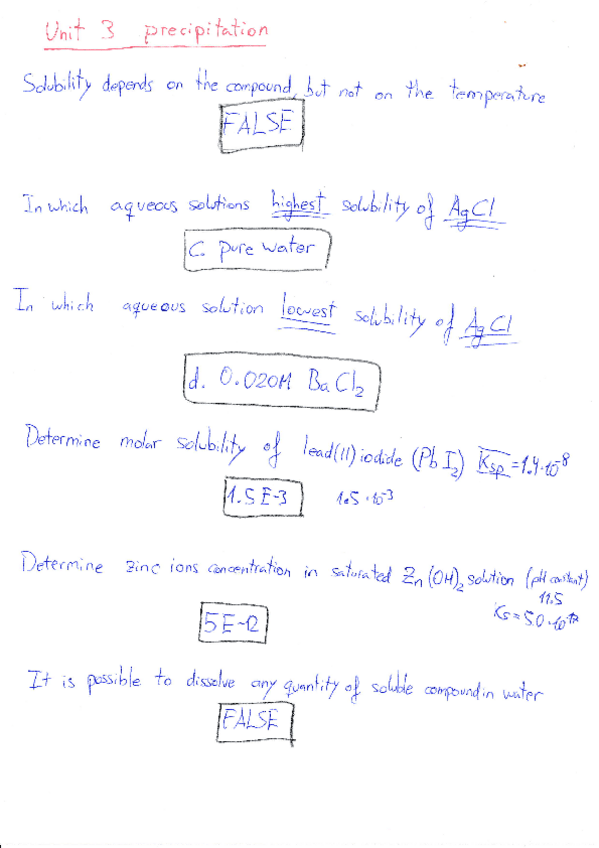 Unit 3 precipitation
Solubility depends on the compound, but not on the temperature
FALSE
In which aqueous solutions highest solubility of AgCl
C. pure water
In which aqueous solution lowest solubility of AgCl
d. 0.020M BaCl₂
Determine molar solubility of lead(II) iodide (PbI₂) Ksp = 1.4·10⁻⁸
1.5E-3 1.5·10⁻³
Determine zinc ions concentration in saturated Zn(OH)₂ solution (pH constant)
11.5
Ks = 5.0·10⁻¹⁷
5E-12
It is possible to dissolve any quantity of soluble compound in water
FALSE